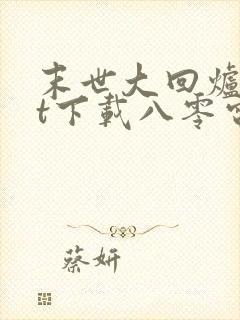 末世大回爐
t下載八零
蔡妍